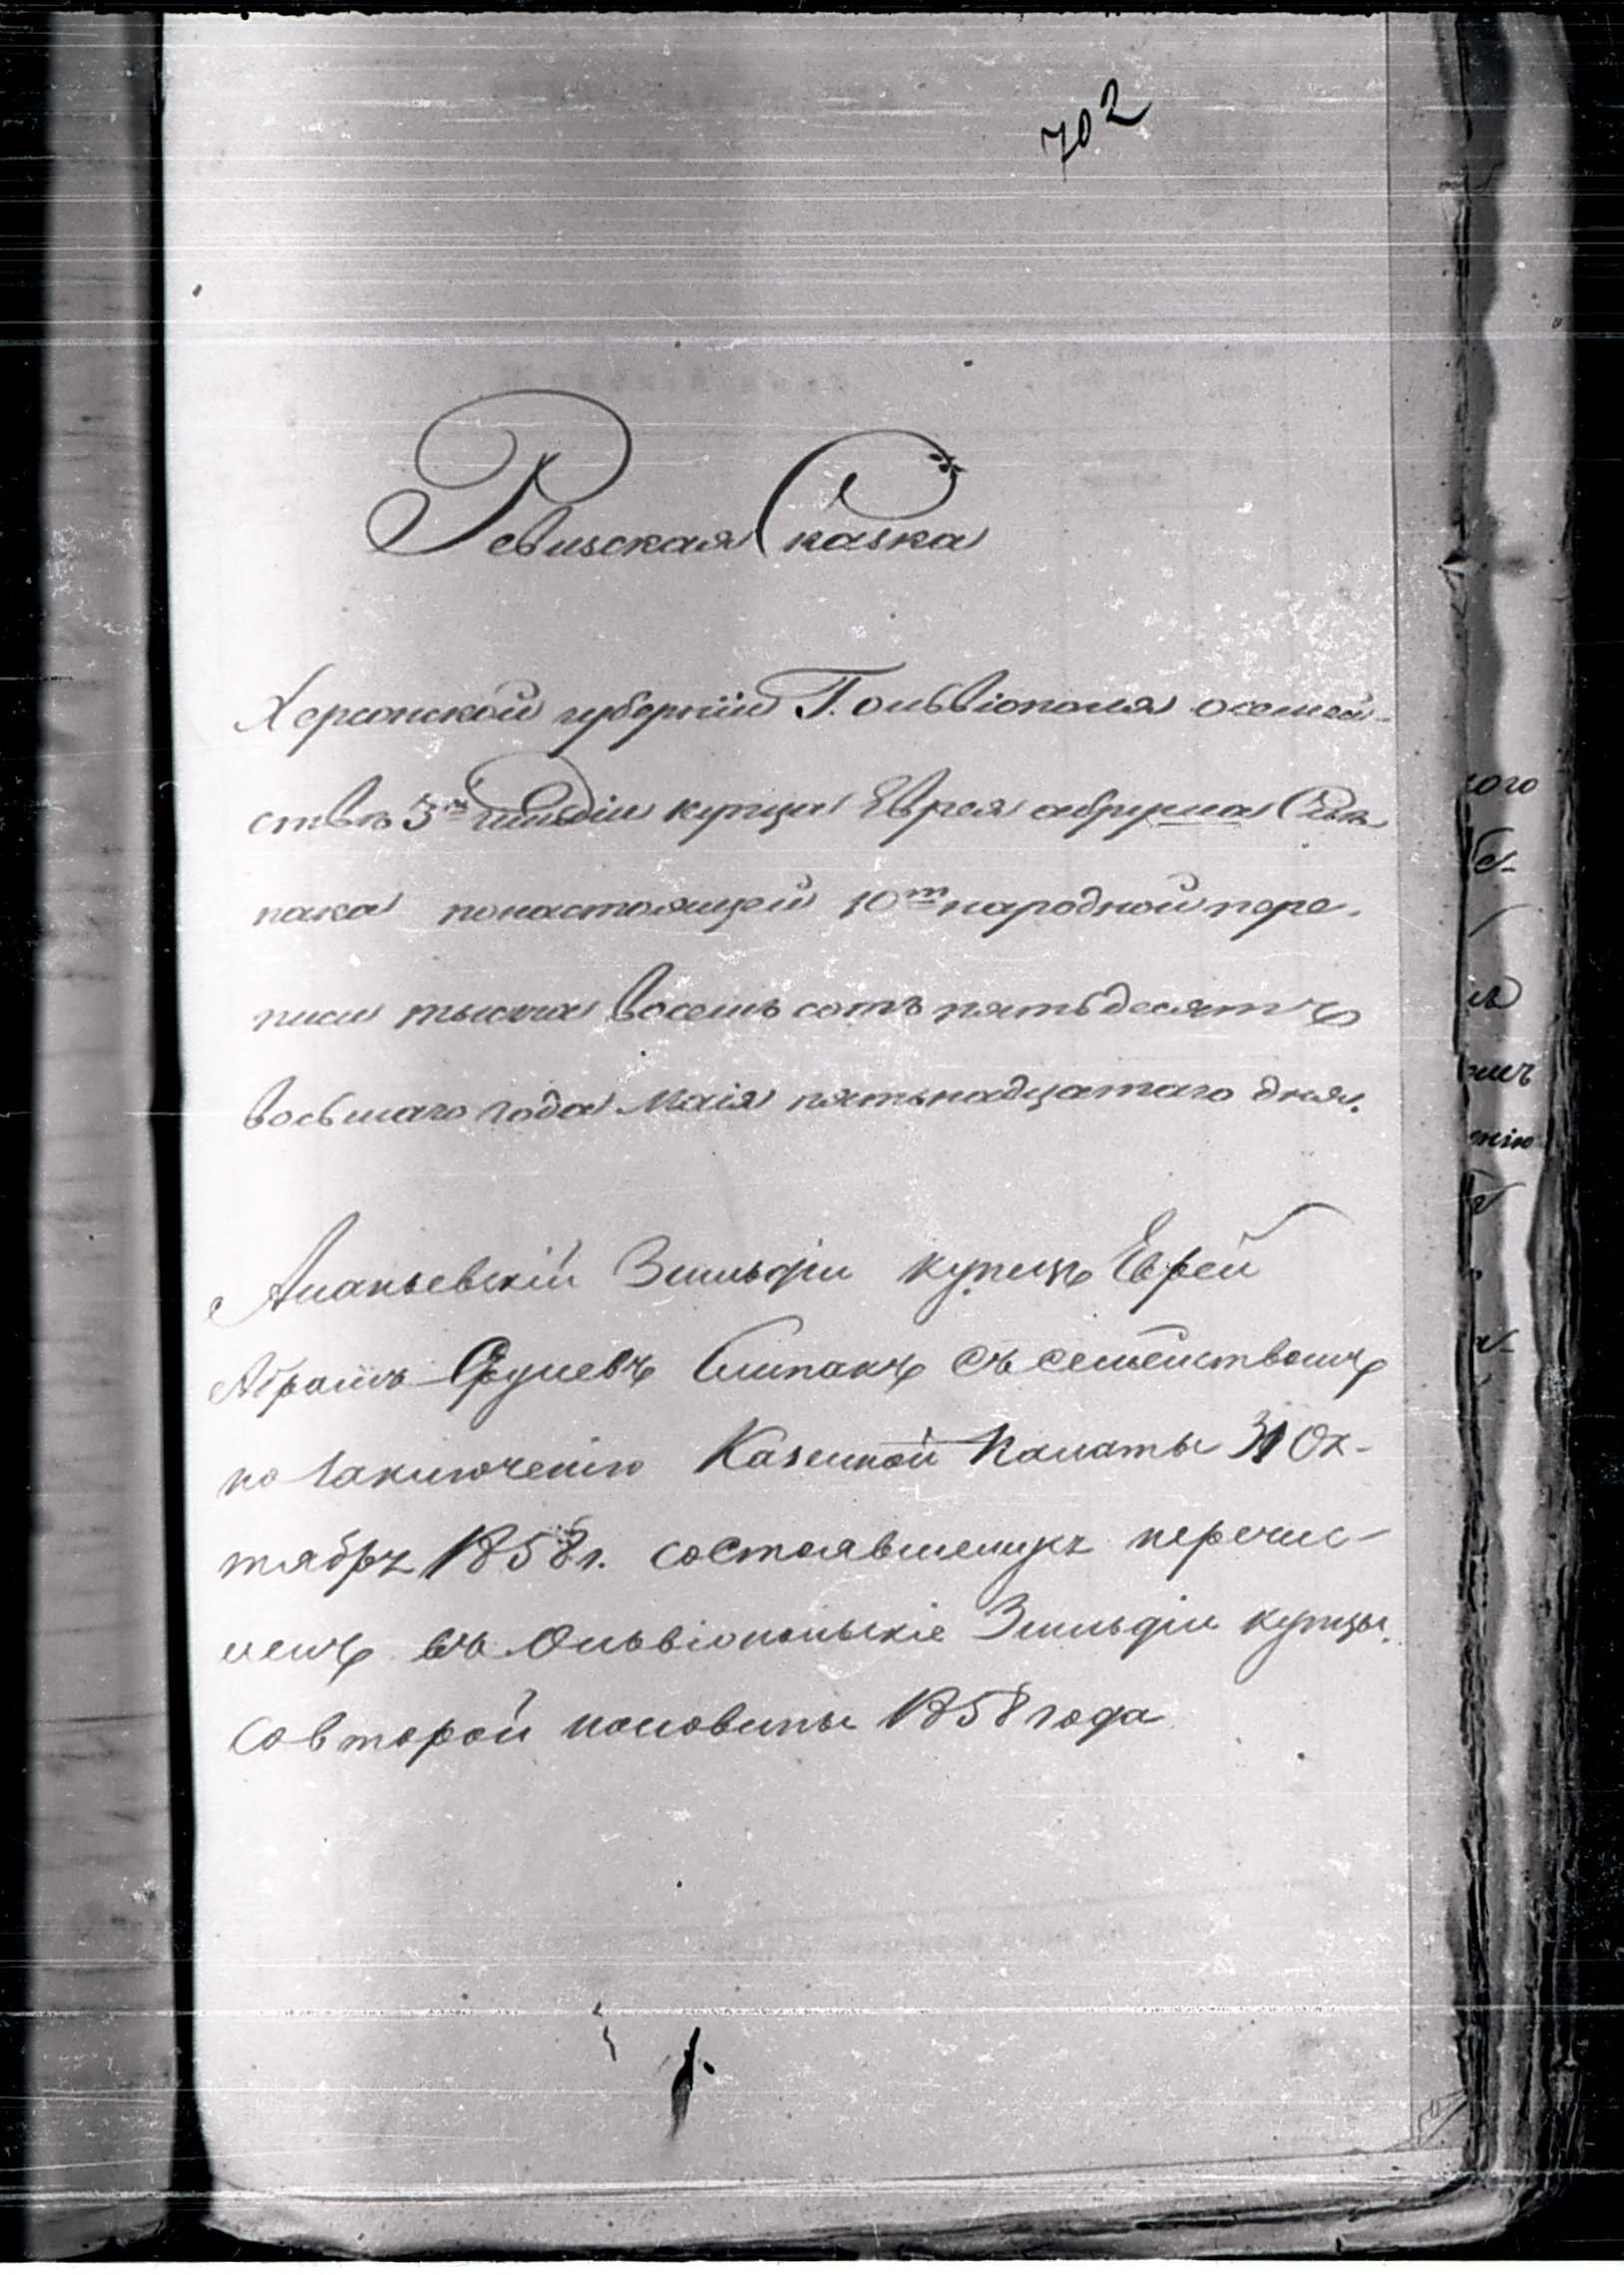 702
Ревизская Сказка
Херсонской губернии Г. ольвіополя осемей-
ствѣ 3й гильдіи купца Еврея абрума Сли-
пака понастоящей 10й народной пере-
писи тысяча восемь сотъ пятьдесятъ
восьмаго года Маія пятьнадцатаго дня.
Ананьевскій 3 гильдіи купецъ Еврей
Абрамъ Слипакъ съ семействомъ
по заключенію Казенной Палаты 31 Ок-
тября 1858 г. состоявшемуся перечис-
ленъ въ Ольвіопольскіе 3 гильдіи купцы
со второй половины 1858 года